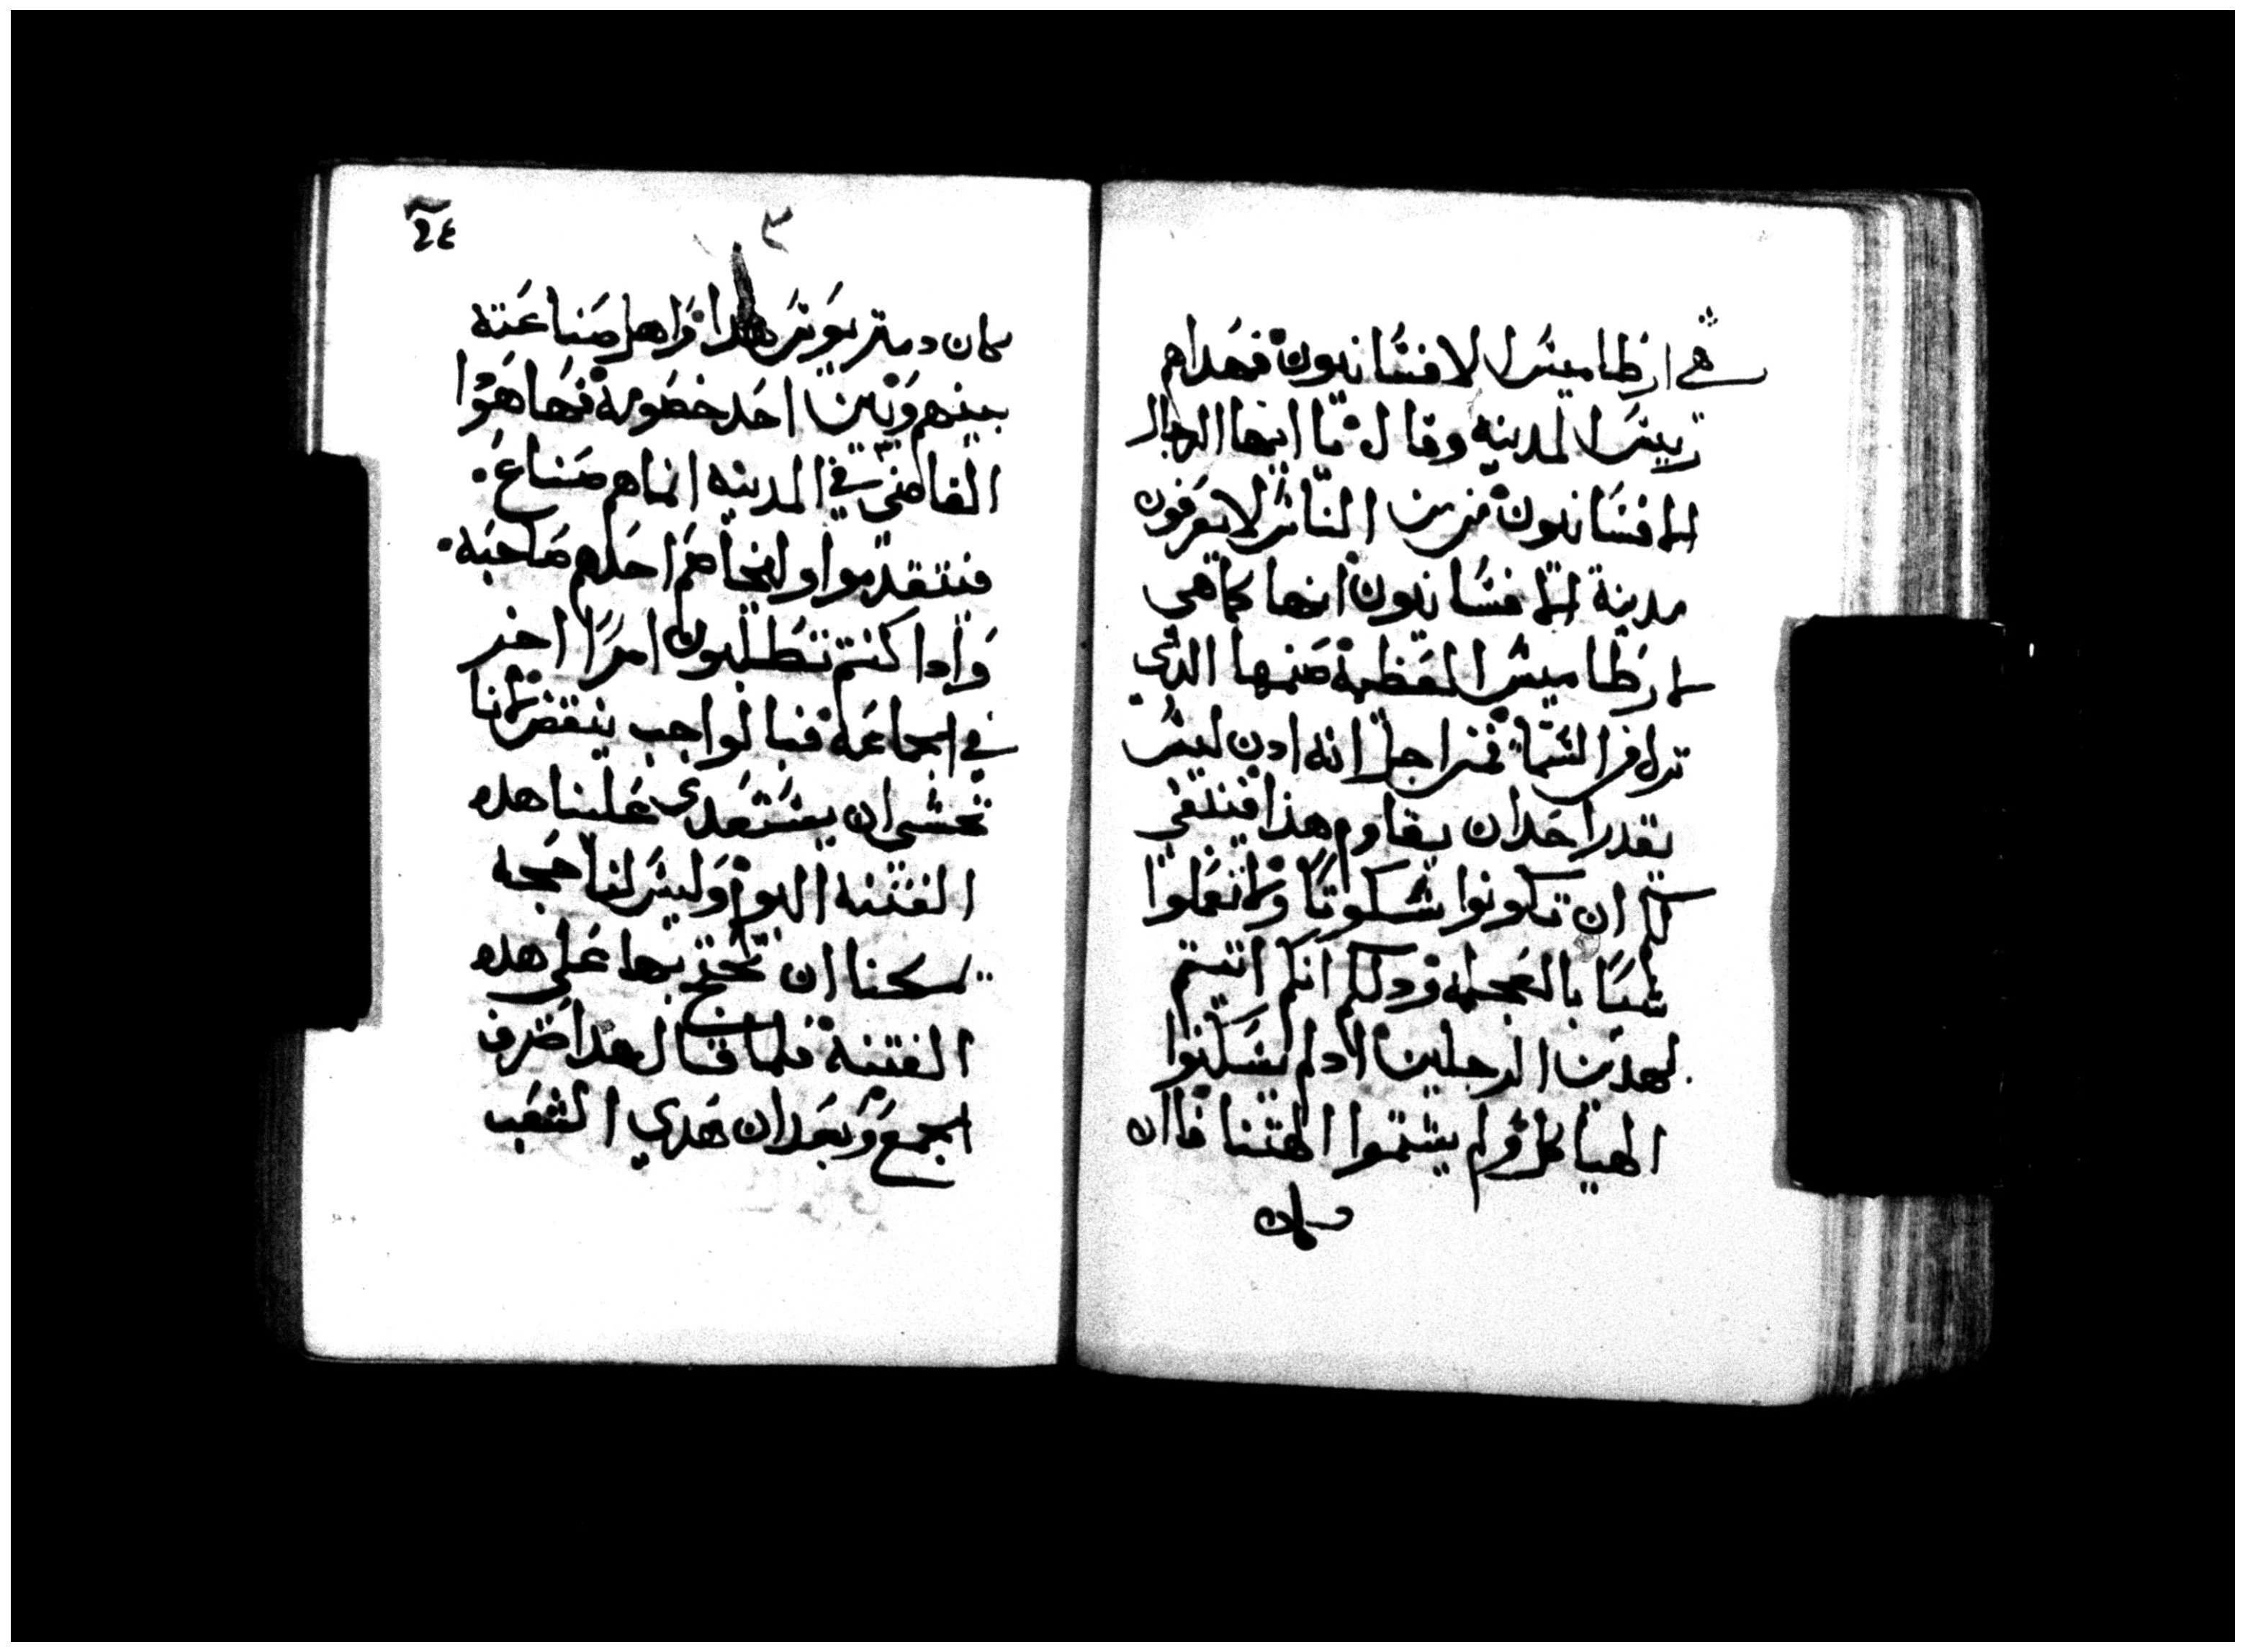 هي ارطاميس الافسانيون فهداهم
رييس المدينه وقال يا ايها الرجال
الافسانيون من من الناس لا يعرفون
مدينة الافسانيون انها كما هي
لارطاميس العظيمة صنمها الدي
نزل من السما فمن اجل انه ادن ليس
يقدر احدا ان يقاوم هذا فينبغي
لكم ان تكونوا سكوتا ولا تعملوا
شيا بالعجله ودلكم انكم اتيتم
بهدين الرجلين اد لم يسلبوا
الهياكل ولم يشتموا الهتنا فاان
كان
٢٤
كان دمتريوس هدا واهل صناعته
بينهم وبين احد خصومة فها هوا
القاضي في المدينه انما هم صناع
فيتقدموا وليحاكم احدهم صاحبه
وادا كنتم تطلبون امرا اخر
في الجماعة فبالواجب ينقض لاننا
نخشى ان يستعدى علينا هده
الفتنه اليوم وليس لنا حجه
يمكننا ان نحتج بها على هده
الفتنة فلما قال هدا صرف
الجمع وبعد ان هدي الشغب